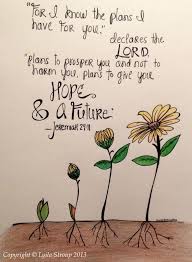 "For I know the plans I
have for you,"
declares the
LORD,
"plans to prosper you and not to
harm you, plans to give you
HOPE
& a Future."
- Jeremiah 29:11
Copyright © Lyila Stroup 2013